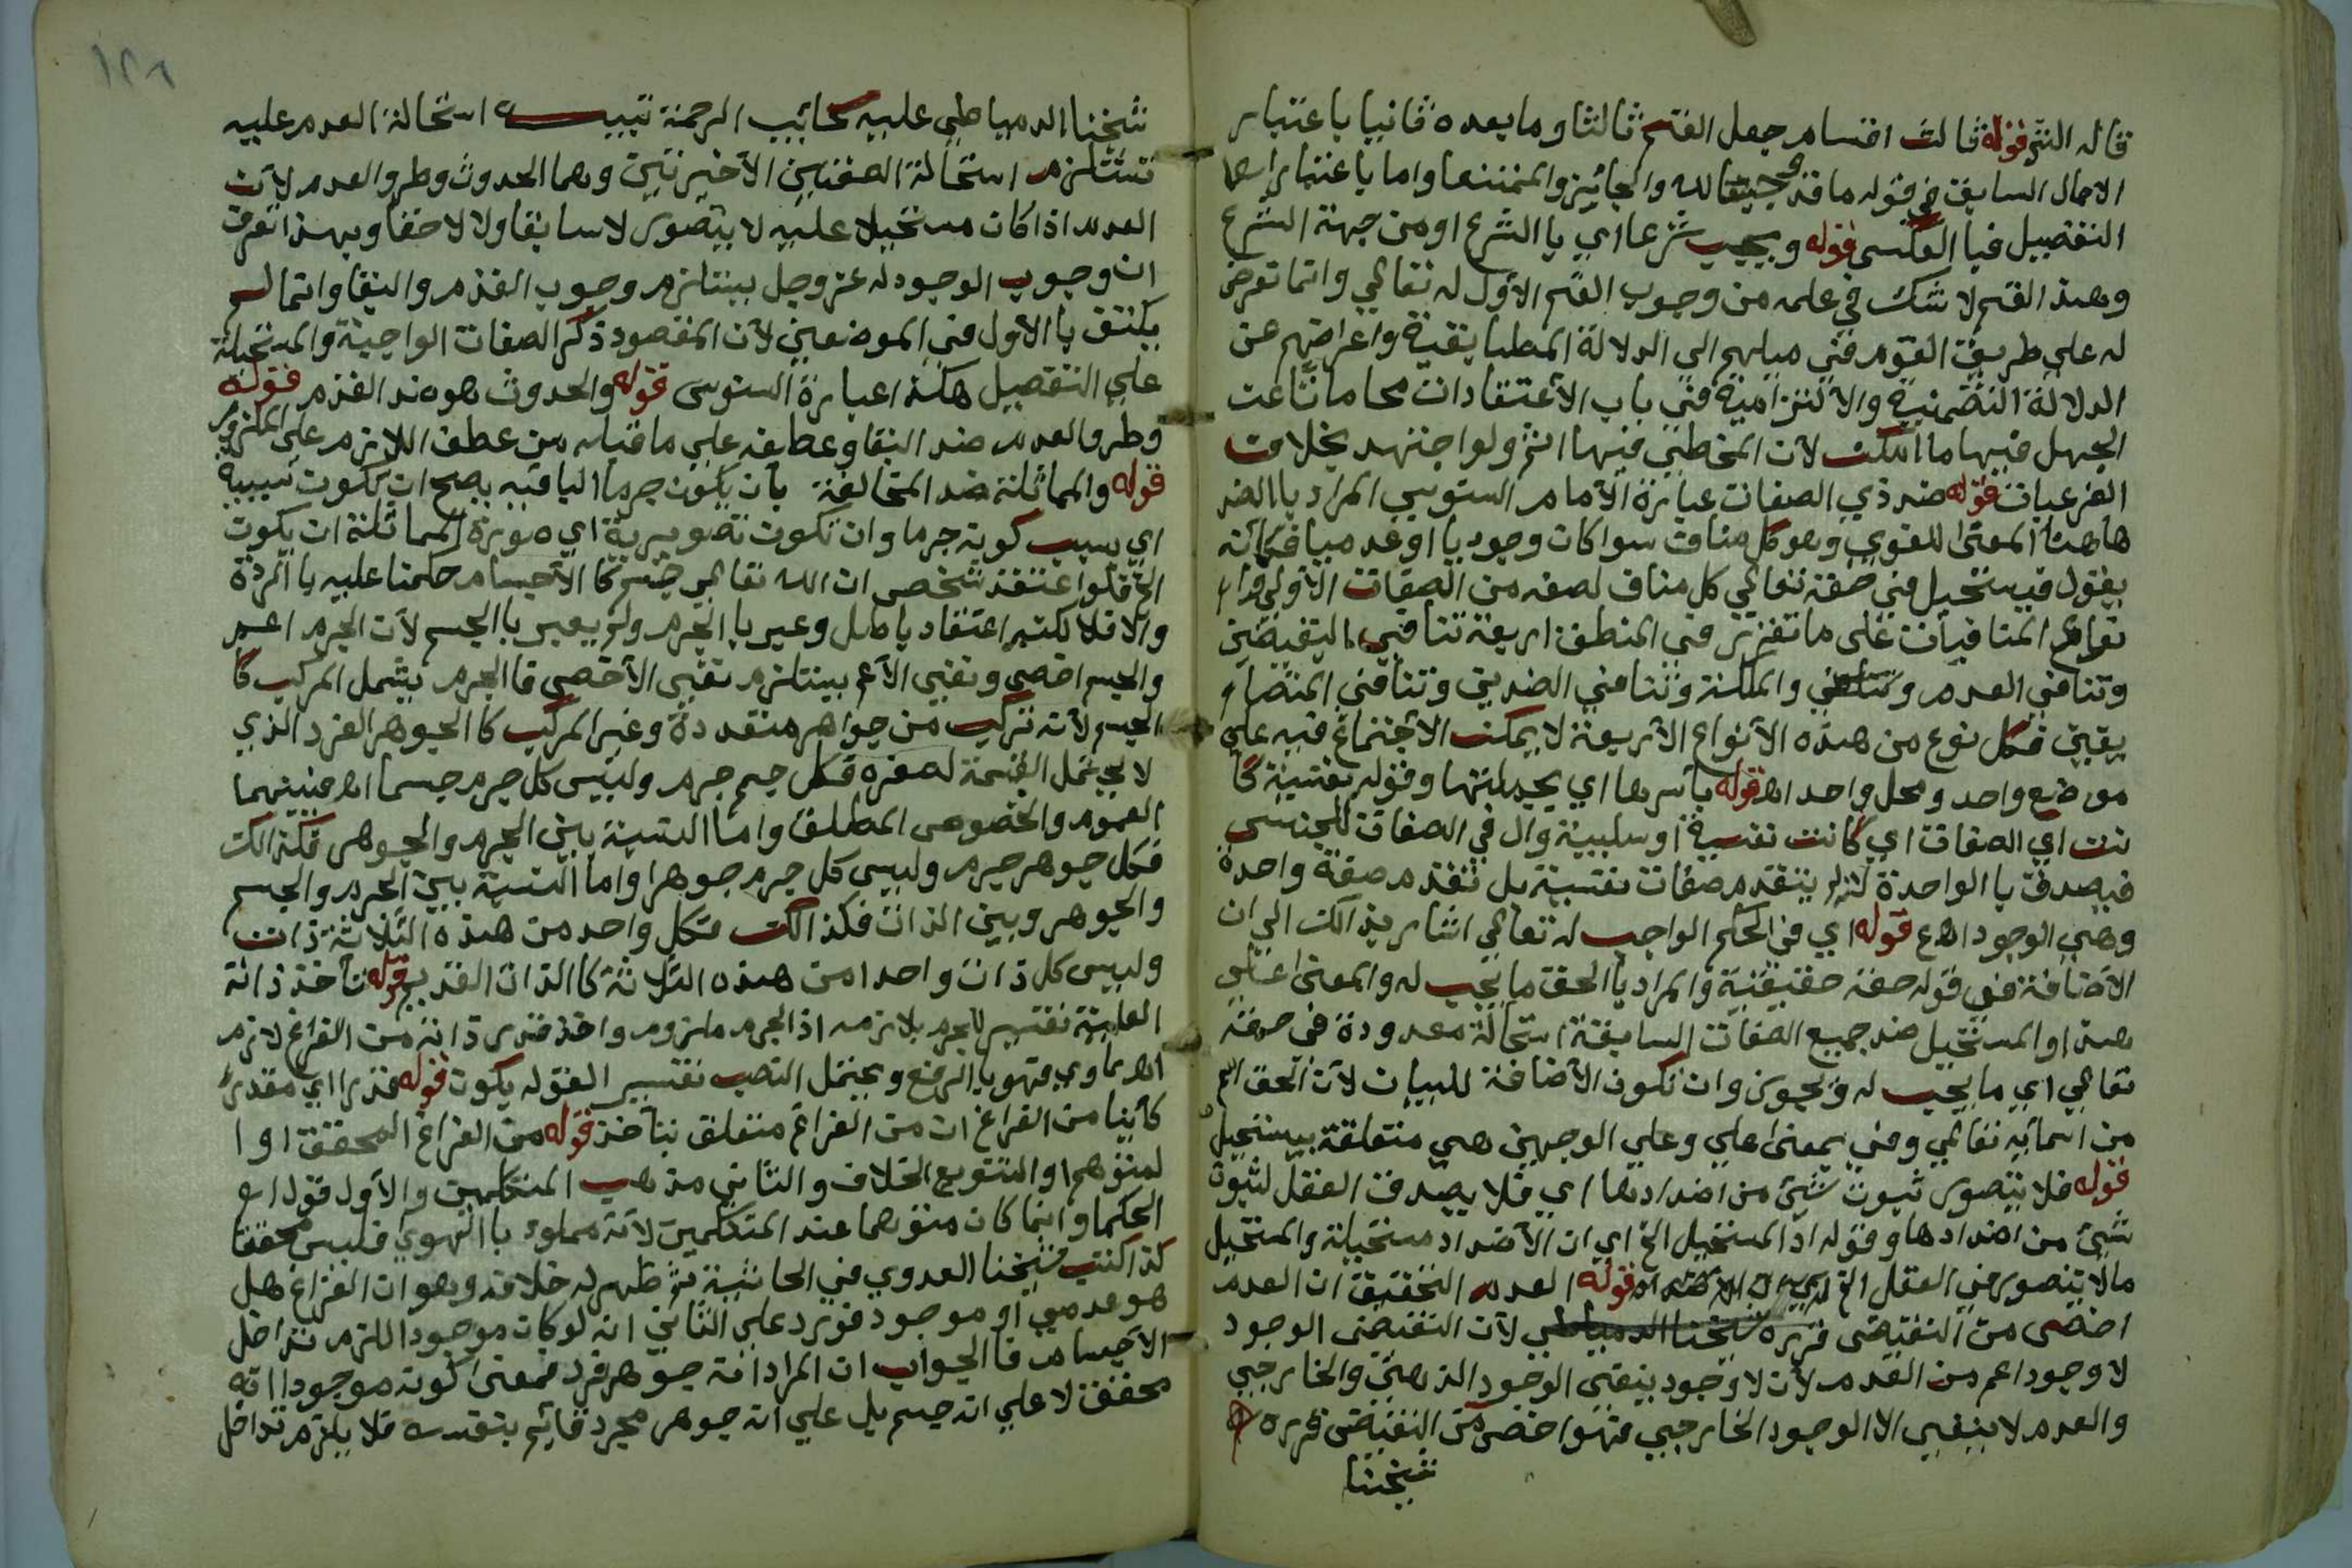 قاله الش قوله ثالث اقسام جعل القسم ثالثا وما بعده ثانيا باعتبار
الاجمال السابق في قوله ما قد وجبا لله والجائز والممتنعا واما باعتبار
التفصيل فبالعكس قوله ويجب شرعا اي بالشرع او من جهة الشرع
وهذا القسم لا شك في علمه من وجوب القسم الأول له تعالي وانما تعرض
له علي طريق القوم في ميلهم الي الدلالة المطابقية واعراضهم عن
الدلالة التضمنية والألتزامية في باب الأعتقادات محاماتا عن
الجهل فيها ما امكن لأن المخطي فيها اثم ولو اجتهد بخلاف
الفرعيات قوله ضد ذي الصفات عبارة الأمام السنوسي المراد باالضد
هاهنا المعنى اللغوي وهو كل مناف سوا كان وجوديا او عدميا فكانه
يقول فيستحيل في حقه تعالي كل مناف لصفه من الصفات الأولي
المنافيات علي ما تقرر في المنطق اربعة تنافي النقيضين
وتنافي العدم والملكة وتنافي الضدين وتنافي المتضا
يفين فكل نوع من هذه الأنواع الأربعة لا يمكن الأجتماع فيه علي
موضع واحد ومحل واحد اه قوله بأسرها اي بجملتها وقوله نفسية كا
نت اي الصفات اي كانت نفسية او سلبية وال في الصفات للجنس
فيصدق باالواحدة لانه لم يتقدم صفات نفسية بل تقدم صفة واحدة
وهي الوجود اه ع قوله اي في الحكم الواجب له تعالي اشار بذالك الي ان
الأضافة في قوله صفه حقيقية والمراد باالحق ما يجب له والمعنى علي
هذا والمستحيل ضد جميع الصفات السابقة استحالة معدودة في حقه
تعالي اي ما يجب له ويجوز وان تكون الأضافة للبيان لأن الحق اسم
من اسمائه تعالي وفي بمعنى علي وعلي الوجهين هي متعلقة بيستحيل
قوله فلا يتصور ثبوت شئ من اضدادها اي فلا يصدق العقل لثبوت
شئ من اضدادها وقوله اذ المستحيل الخ اي ان الأضداد مستحيلة والمستحيل
ما لا يتصور في العقل الخ قوله العدم التحقيق ان العدم
اخص من النقيض قرره شيخنا الدمياطي لأن النقيض الوجود
لا وجود اعم من العدم لأن لا وجود ينفي الوجود الذهني والخارجي
والعدم لا ينفي الا الوجود الخارجي فهو اخص من النقيض قرره
شيخنا
١٢٦
شيخنا الدمياطي عليه سحائب الرحمة تنبيه استحالة العدم عليه
تستلزم استحالة الصفتين الأخيرتين وهما الحدوث وطرو العدم لأن
العدم اذا كان مستحيلا عليه لا يتصور لا سابقا ولا لاحقا وبهذا تعرف
ان وجوب الوجود له عز وجل يستلزم وجوب القدم والبقا وانما لم
يكتف باالأول في الموضعين لأن المقصود ذكر الصفات الواجبة والمستحيلة
علي التفصيل هكذا عبارة السنوسي قوله والحدوث هو ضد القدم قوله
وطرو العدم ضد البقا وعطفه علي ما قبله من عطف اللازم علي الملزوم
قوله والمماثلة ضد المخالفة بأن يكون جرما البا فيه يصح ان تكون سببية
اي بسبب كونه جرما وان تكون تصويرية اي صورة المماثلة ان يكون
الخ فلو اعتقد شخص ان الله تعالي جسم كا الأجسام حكمنا عليه باالردة
والا فلا لكنه اعتقاد باطل وعبر باالجرم ولم يعبر باالجسم لأن الجرم اعم
والجسم اخص ونفي الأعم يستلزم نفي الأخص فاالجرم يشمل المركب كا
الجسم لأنه تركب من جواهر متعددة وغير المركب كا الجوهر الفرد الذي
لا يحتمل القسمة لصغره فكل جسم جرم وليس كل جرم جسما اه فبينهما
العموم والخصوص المطلق واما النسبة بين الجرم والجوهر فكذالك
فكل جوهر جرم وليس كل جرم جوهرا واما النسبة بين الجرم والجسم
والجوهر وبين الذات فكذالك فكل واحد من هذه الثلاثة ذات
وليس كل ذات واحدا من هذه الثلاثة كا الذات القديم قوله تأخذ ذاته
العلية تفسير للجرم بلازمه اذ الجرم ملزوم واخذ قدر ذاته من الفراغ لازم
اه سحاوي فهو باالرفع ويحتمل النصب تفسير القوله يكون قوله قدرا اي مقدرا
كائنا من الفراغ ان من الفراغ متعلق بتأخذ قوله من الفراغ المحقق او ا
لمتوهم او التنويع الخلاف والثاني مذهب المتكلمين والأول قول
الحكما وانما كان متوهما عند المتكلمين لأنه مملوء باالهوي فليس محققا
كذا كتب شيخنا العدوي في الحاشية ثم ظهر له خلافه وهو ان الفراغ هل
هو عدمي او موجود فورد علي الثاني انه لو كان موجودا للزم تداخل
الأجسام فاالجواب ان المراد انه جوهر فرد فمعنى كونه موجودا انه
محقق لا علي انه جسم بل علي انه جوهر مجرد قائم بنفسه فلا يلزم تداخل